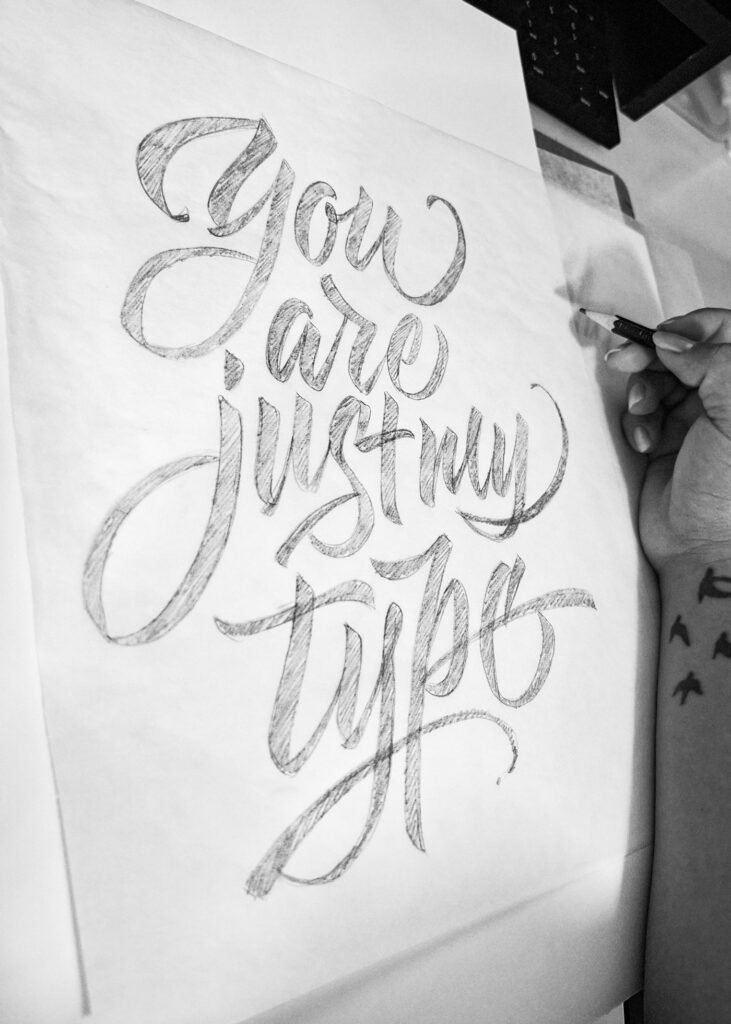 You
are
just my
type